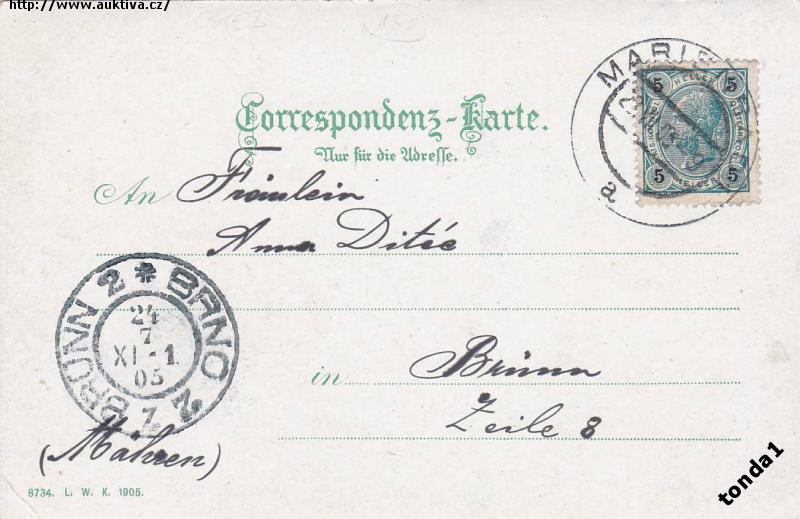 http://www.auktiva.cz/
Correspondenz-Karte.
Nur für die Adresse.
MARIE
a
5 HELLER 5
5 HELLER 5
An Fräulein
Anna
BRÜNN 2 * BRNO 2
24
7
XI-1
05
in Brünn
Zeile 8
(Mähren)
8734. L. W. K. 1905.
tonda1